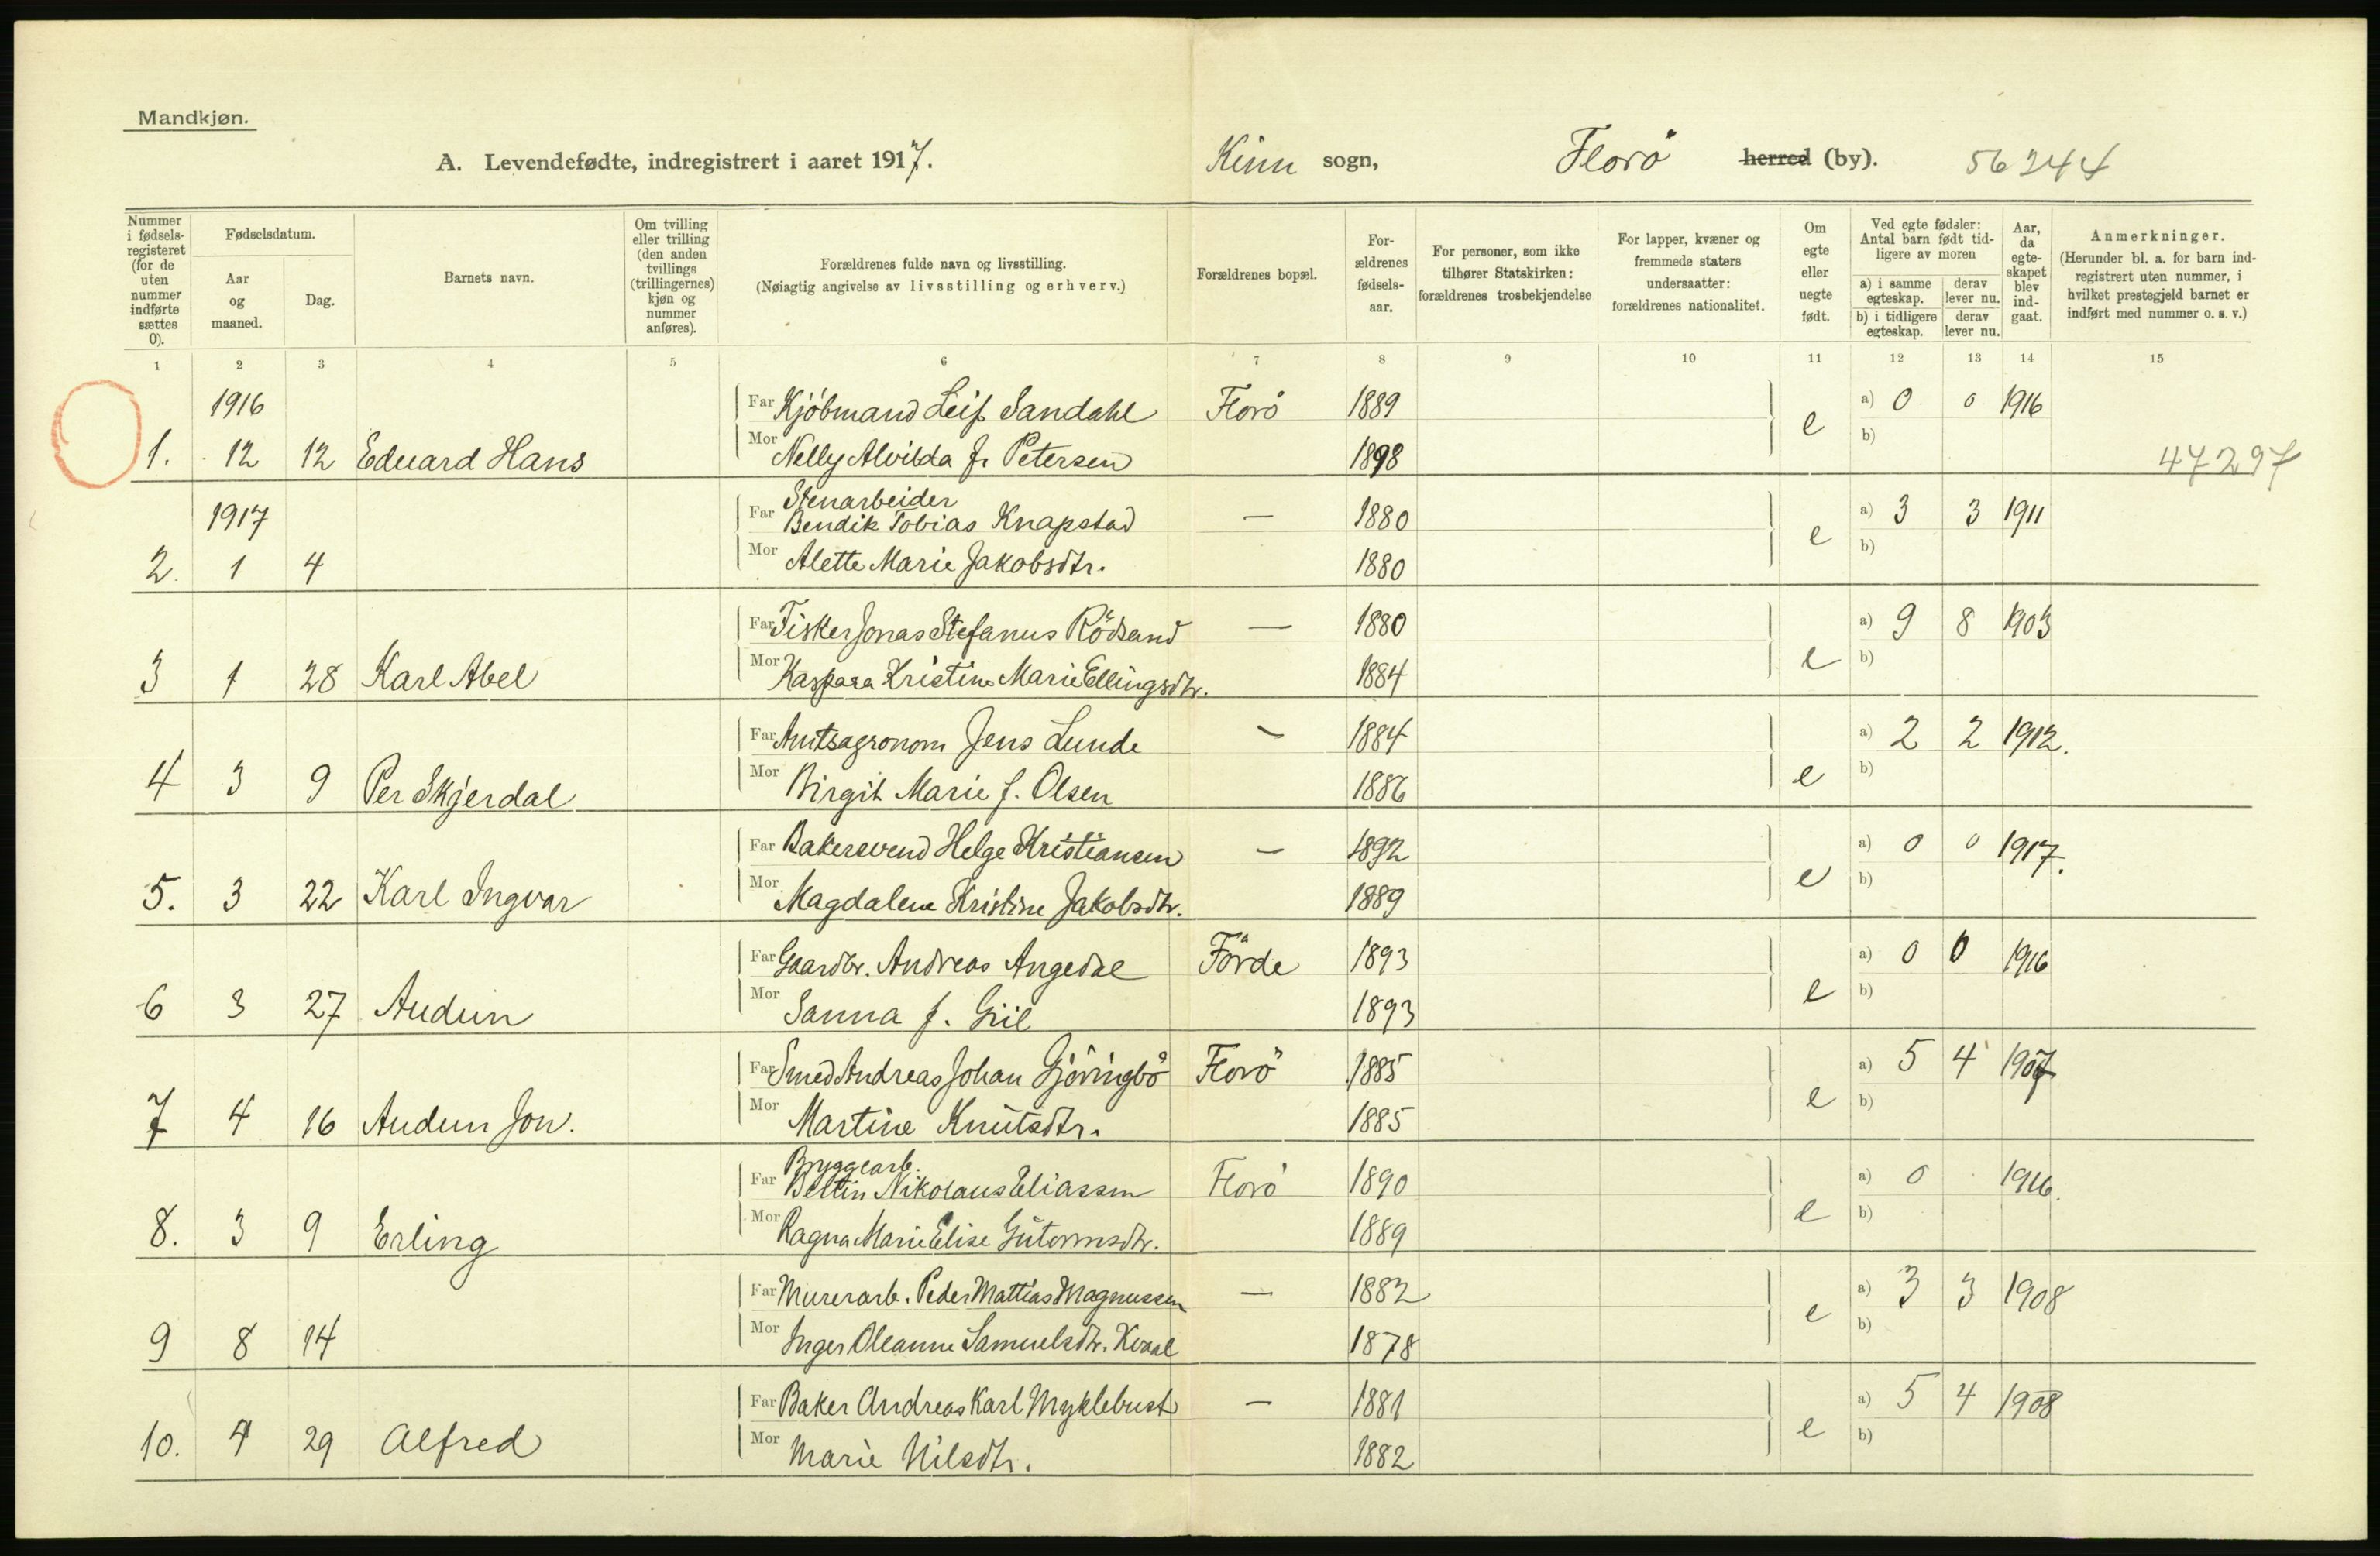 Mandkjøn.
A. Levendefødte, indregistrert i aaret 1917. Kinn sogn, Florö herred (by). 56244
Nummer i fødsels-registeret (for de uten nummer indførte sættes 0).
Fødselsdatum.
Aar og maaned.
Dag.
Barnets navn.
Om tvilling eller trilling (den anden tvillings (trillingernes) kjøn og nummer anføres).
Forældrenes fulde navn og livsstilling.
(Nøiagtig angivelse av livsstilling og erhverv.)
Forældrenes bopæl.
For-ældrenes fødsels-aar.
For personer, som ikke tilhører Statskirken: forældrenes trosbekjendelse
For lapper, kvæner og fremmede staters undersaatter: forældrenes nationalitet.
Om egte eller uegte født.
Ved egte fødsler: Antal barn født tid-ligere av moren
a) i samme egteskap.
derav lever nu.
b) i tidligere egteskap.
derav lever nu.
Aar, da egte-skapet blev ind-gaat.
Anmerkninger.
(Herunder bl. a. for barn ind-registrert uten nummer, i hvilket prestegjeld barnet er indført med nummer o. s. v.)
1 2 3 4 5 6 7 8 9 10 11 12 13 14 15
1916 Far Kjöbmand Leif Sandahl Florö 1889 e a) 0 0 1916
1. 12 12 Eduard Hans Mor Nelly Alvilda f. Petersen 1898 b) 47297
Stenarbeider
1917 Far Bendik Tobias Knapstad — 1880 e a) 3 3 1911
2. 1 4 Mor Alette Marie Jakobsdtr. 1880 b)
Far Fisker Jonas Stefanus Rödsand — 1880 a) 9 8 1903
3 1 28 Karl Abel Mor Kaspara Kristine Marie Ellingsdtr. 1884 e b)
Far Amtsagronom Jens Lunde — 1884 a) 2 2 1912.
4 3 9 Per Skjerdal Mor Birgit Marie f. Olsen 1886 e b)
Far Bakersvend Helge Kristiansen — 1892 a) 0 0 1917.
5. 3 22 Karl Ingvar Mor Magdalene Kristine Jakobsdtr. 1889 e b)
Far Gaardbr. Andreas Angedal Förde 1893 a) 0 0 1916
6 3 27 Audun Mor Sanna f. Giil 1893 e b)
Far Smed Andreas Johan Gjöringbö Florö 1885 a) 5 4 1907
7 4 16 Audun Jon. Mor Martine Knutsdtr. 1885 e b)
Bryggearb.
Far Bertin Nikolaus Eliassen Florö 1890 a) 0 1916.
8. 3 9 Erling Mor Ragna Marie Elise Gutormsdtr. 1889 e b)
Far Murerarb. Peder Mattias Magnussen — 1882 a) 3 3 1908
9 8 14 Mor Inger Oleanne Samuelsdtr. Kvaal 1878 e b)
Far Baker Andreas Karl Myklebust — 1881 a) 5 4 1908
10. 4 29 Alfred Mor Marie Nilsdtr. 1882 e b)